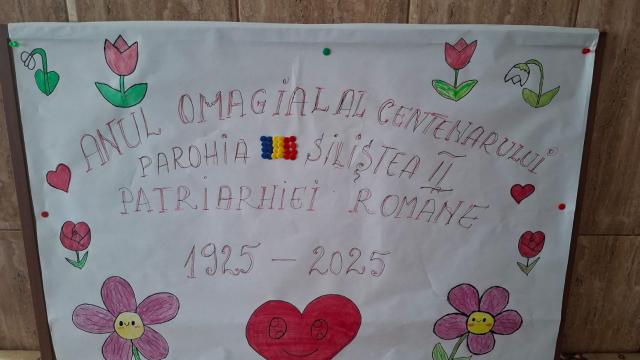 ANUL OMAGIAL AL CENTENARULUI
PAROHIA SILIȘTEA II
PATRIARHIEI ROMÂNE
1925 - 2025